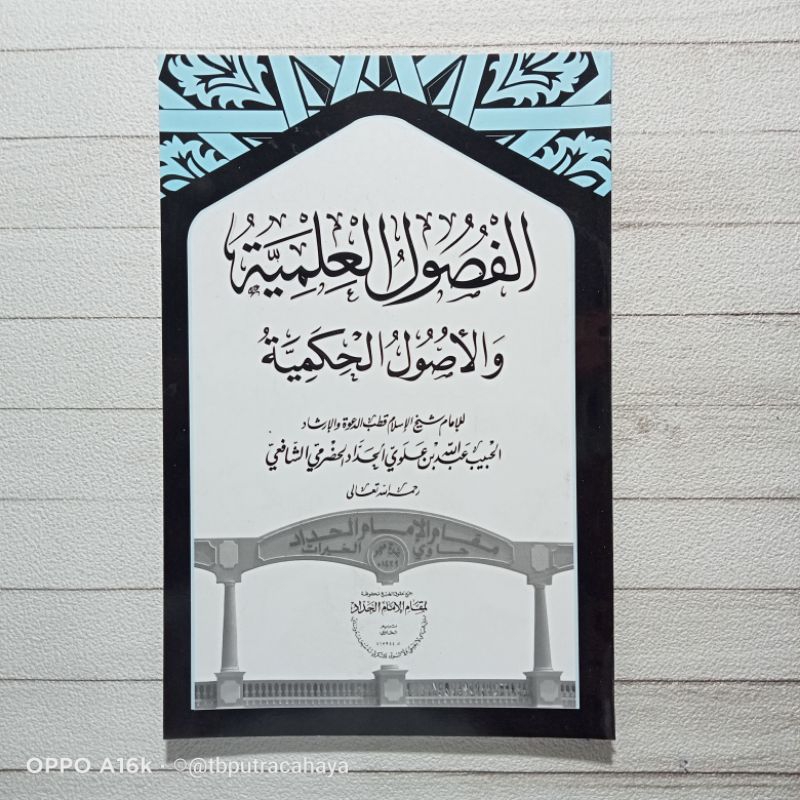 الفُصُولُ العِلْمِيَّةُ
وَالأُصُولُ الحِكَمِيَّةُ
للإمام شيخ الإسلام قطب الدعوة والإرشاد
الحبيب عبد الله بن علوي الحداد الحضرمي الشافعي
رحمه الله تعالى
مقام الإمام الحداد
حاوي الخيرات
جميع حقوق الطبع محفوظة
لمقام الإمام الحداد
OPPO A16k · ©@tbputracahaya